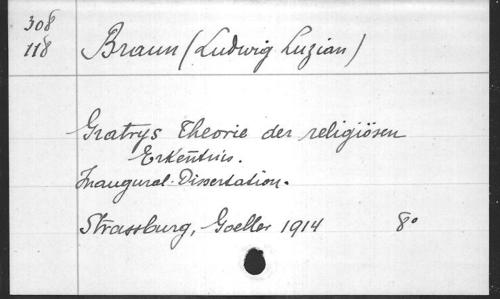 308
118
Braun (Ludwig Luzian)
Gratrys Theorie der religiösen
Erkentnis.
Inaugural-Dissertation.
Strassburg, Goeller 1914 8°